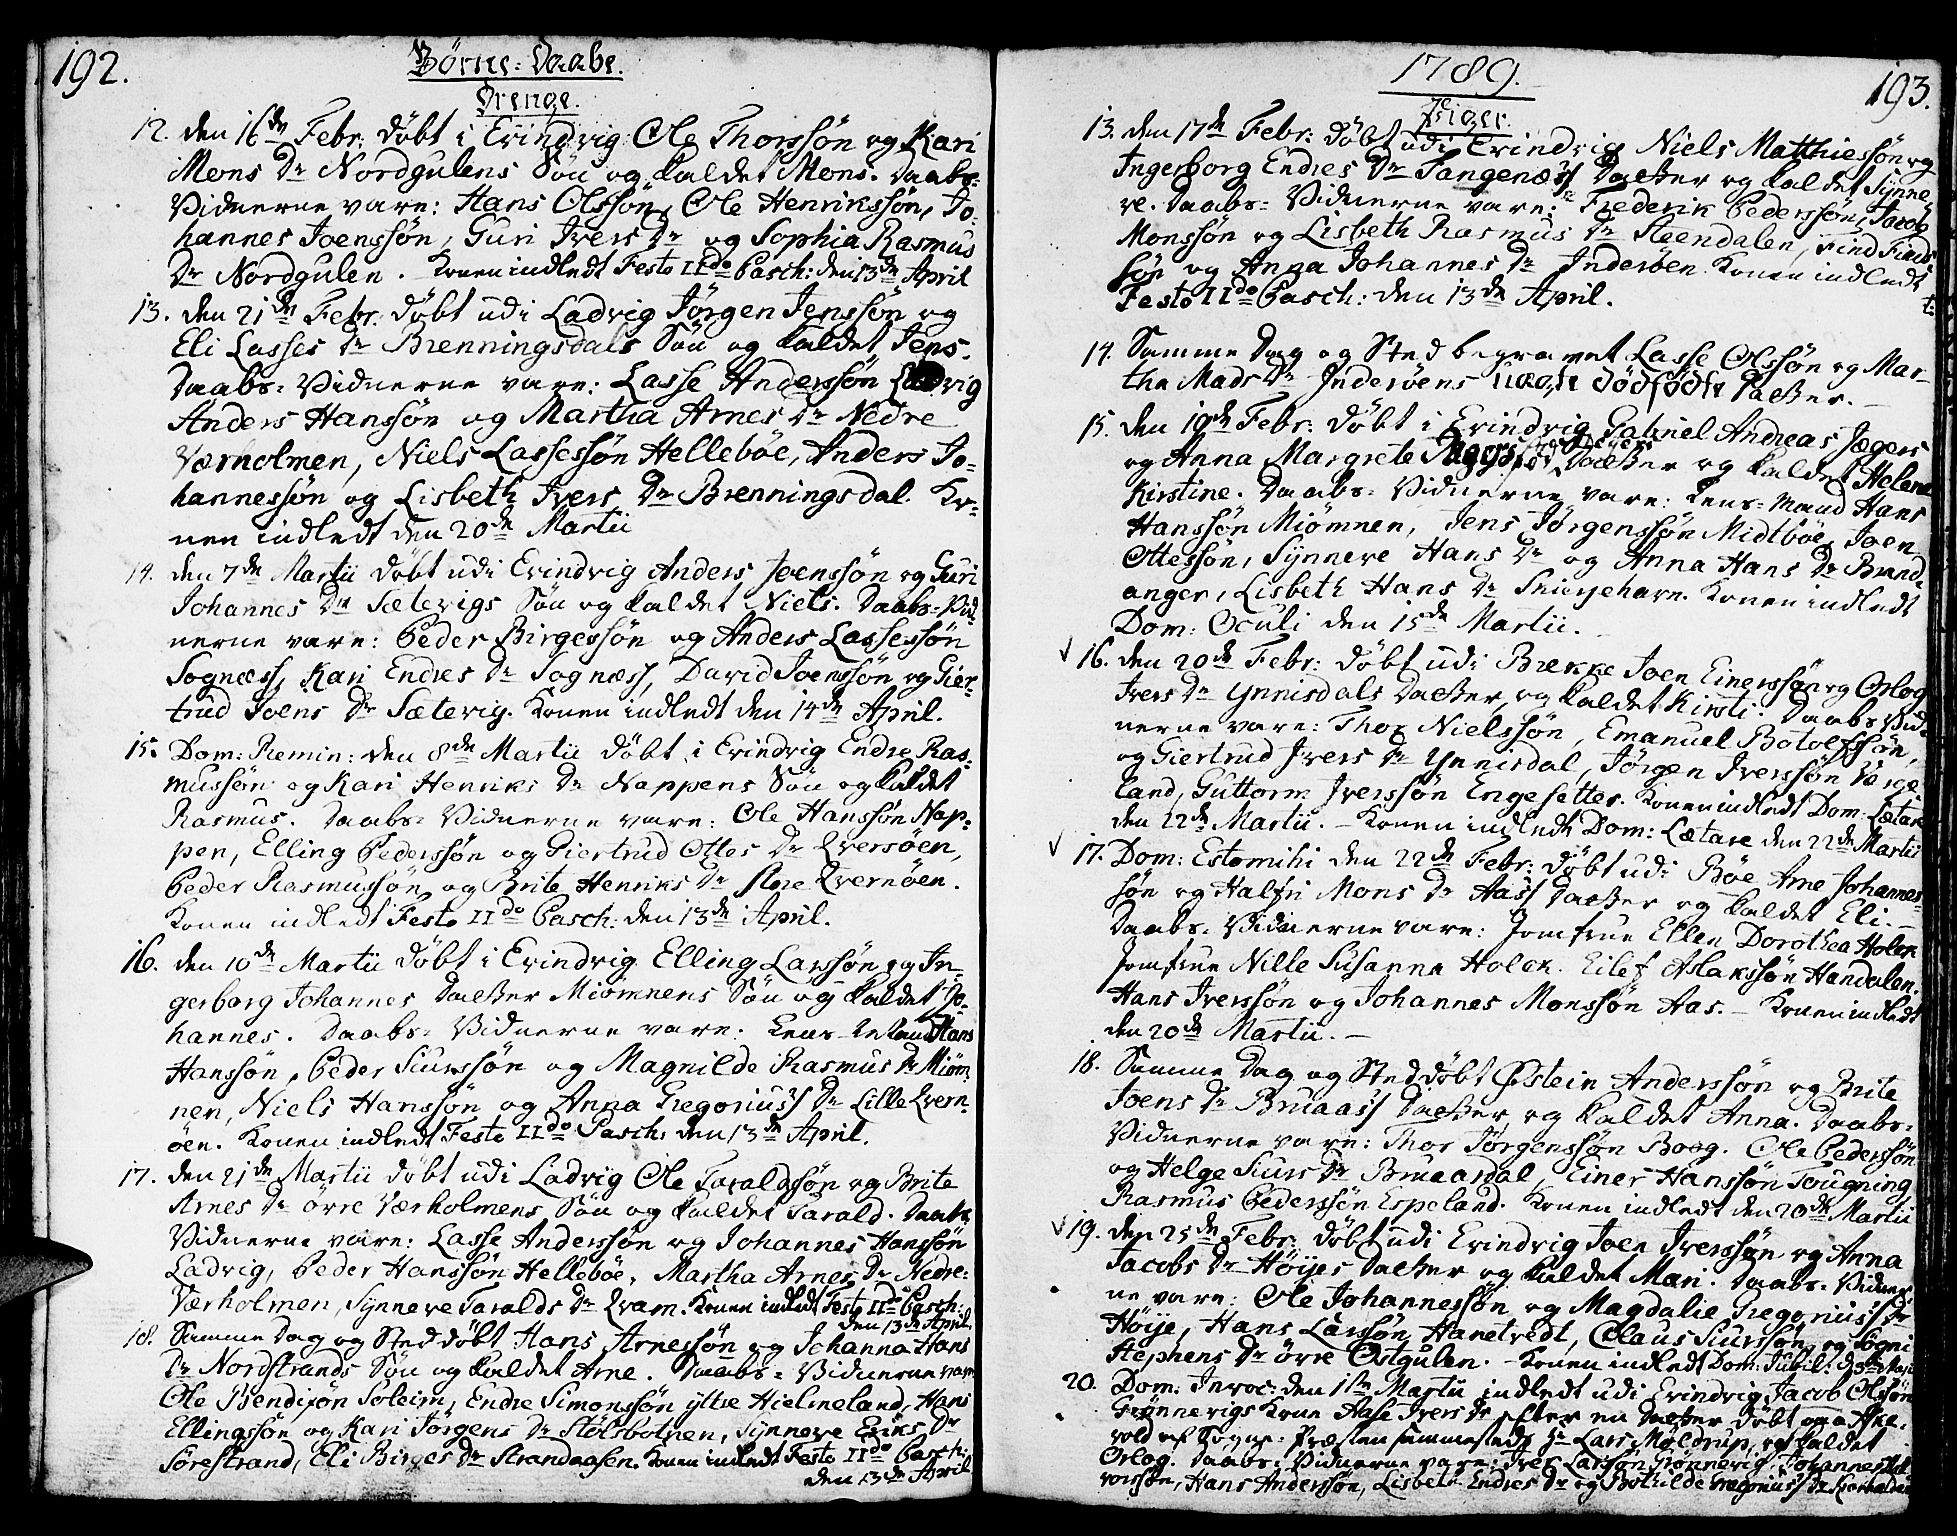 192.
Börne-Daabe.
Drenge.
12. den 16de Febr: döbt i Evindvig Ole Thorssön og Kari
Mons Dr Nordgulens Sön og kaldet Mons. Daabs-
Vidnerne vare: Hans Olssön, Ole Henrikssön, Jo-
hannes Joenssön, Guri Ivers Dr og Sophia Rasmus
Dr Nordgulen. Konen indledt Festo IIdo Pasch: den 13de April
13. den 21de Febr: döbt udi Ladvig Jörgen Jenssön og
Eli Lasses Dr Brenningsdals Sön og kaldet Jens.
Daabs-Vidnerne vare: Lasse Anderssön Ladvig
Anders Hanssön og Martha Arnes Dr Nedre
Værholmen, Niels Lassessön Helleböe, Anders Jo-
hannessön og Lisbeth Ivers Dr Brenningsdal. Ko-
nen indledt den 20de Martii
14. den 7de Martii döbt udi Evindvig Anders Joenssön og Guri
Johannes Dr Sætevigs Sön og kaldet Niels. Daabs-Vid-
nerne vare: Peder Birgessön og Anders Lassessön
Sognæss, Kari Endres Dr Sognæss, David Joenssön og Gier-
trud Joens Dr Sætevig. Konen indledt den 14de April.
15. Dom: Remin: den 8de Martii döbt i Evindvig Endre Ras-
mussön og Kari Henriks Dr Nappens Sön og kaldet
Rasmus. Daabs-Vidnerne vare: Ole Hanssön Nap-
pen, Elling Pederssön og Giertrud Ottes Dr Qversöen,
Peder Rasmussön og Brite Henriks Dr store Qvernöen.
Konen indledt Festo IIdo Pasch: den 13de April.
16. den 10de Martii döbt i Evindvig Elling Larssön og In-
gerborg Johannes Datter Miömnens Sön og kaldet Jo-
hannes. Daabs-Vidnerne vare: Hans
Hanssön, Peder Siurssön og Magnilde Rasmus Dr Miöm-
nen, Niels Hanssön og Anna Gregoriuss Dr Lille Qvern-
öen. Konen indledt Festo IIdo Pasch: den 13de April.
17. den 21de Martii döbt udi Ladvig Ole Taraldssön og Brite
Arnes Dr övre Værholmens Sön og kaldet Tarald. Daabs
Vidnerne vare: Lasse Anderssön og Johannes Hanssön
Ladvig, Peder Hanssön Helleböe, Martha Arnes Dr Nedre-
Værholmen, Synneve Taralds Dr Qvam. Konen indledt Festo IIdo Pasch:
den 13de April.
18. Samme Dag og Sted döbt Hans Arnessön og Johanna Hans
Dr Nordstrands Sön og kaldet Arne. Daabs-Vidnerne vare
Ole Bendixön Soleim, Endre Simonssön yttre Hielmeland, Hans
Ellingssön og Kari Jörgens Dr Stölsbotnen, Synneve Eriks Dr
Sörestrand, Eli Birges Dr Strandaasen. Konen indledt Festo IIdo Pasch:
den 13de April
1789.
193.
Piger.
13. den 17de Febr: döbt udi Evindvig Niels Matthiessön og
Ingerborg Endres Dr Tangenæss Datter og kaldet Synne-
ve. Daabs-Vidnerne vare: Frederik Pederssön, Jacob
Monssön og Lisbeth Rasmus Dr Steendalen, Find Finds-
sön og Anna Johannes Dr Inderöen. Konen indledt
Festo IIdo Pasch: den 13de April.
14. Samme Dag og Sted begravet Lasse Olssön og Mar-
tha Mads Dr Inderöens uægte dödfödte Datter.
15. den 19de Febr: döbt i Evindvig Gabriel Andreas Jægers
og Anna Margrete Datter og kaldet Helene
Kirstine. Daabs-Vidnerne vare: Lens-Mand Hans
Hanssön Miömnen, Jens Jörgenssön Midtböe, Joen
Ottessön, Synneve Hans Dr og Anna Hans Dr Brand-
anger, Lisbeth Hans Dr Skiergehavn. Konen indledt
Dom: Oculi den 15de Martii.
16. den 20de Febr: döbt udi Brekke Joen Einerssön og Orlog
Ivers Dr Ynnisdals Datter og kaldet Kirsti. Daabs-Vid-
nerne vare: Thor Nielssön, Emanuel Botolfssön,
og Giertrud Ivers Dr Ynnisdal, Jörgen Iverssön Værge-
land, Guttorm Iverssön Engesetter. Konen indledt Dom: Lætare
den 22de Martii. – Konen indledt Dom: Lætare den 22de Martii
17. Dom: Estomihi den 22de Febr: döbt udi Böe Arne Johannes-
sön og Halfri Mons Dr Aass Datter og kaldet Eli. –
Daabs-Vidnerne vare: Jomfrue Ellen Dorothea Holck
Jomfrue Nille Susanna Holck. Eilef Aslakssön Handalen.
Hans Iverssön og Johannes Monssön Aas. – Konen indledt
den 20de Martii. –
18. Samme Dag og Sted döbt Östein Anderssön og Brite
Joens Dr Bruaass Datter og kaldet Anna. Daabs-
Vidnerne vare: Thor Jörgenssön Boog. Ole Pederssön
og Helge Siurs Dr Bruaardal, Einer Hanssön Tougning,
Rasmus Pederssön Espeland. Konen indledt den 20de Martii
19. den 25de Febr: döbt udi Evindvig Joen Iverssön og Anna
Jacobs Dr Höijes Datter og kaldet Mari. Daabs-Vidner-
ne vare: Ole Johannessön og Magdalie Gregoriuss Dr
Höije, Hans Larssön Hanetvedt, Claus Siurssön og Sogni
Stephens Dr övre Östgulen. – Konen indledt Dom: Jubil: d. 3de Maji
20. Dom: Invoc: den 1ste Martii indledt udi Evindvig Jacob Olssön
Grönnevigs Kone Aase Ivers Dr efter en Datter döbt paa Aske-
vold af Sogne-Præsten sammesteds Hr Lars Möldrup, og kaldet
Orlog. Daabs-Vidnerne vare: Iver Larssön Grönnevig, Johannes
Hans Anderssön, Lisbeth Endres Dr og Bothilde Gregoriuss Dr